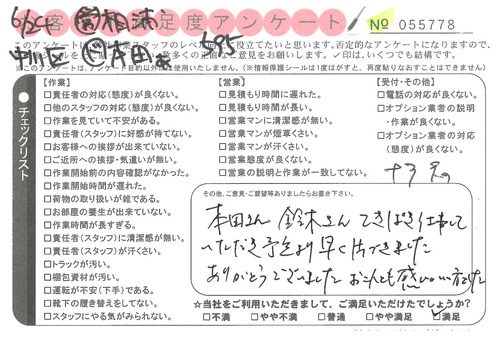 お客様満足度アンケート No 055778
6/25
中川区 本田 695
このアンケートは スタッフのレベル 役立てたいと思います。否定的なアンケートになりますので、
数多くの正直なご意見をお願いします。✓印は、いくつでも結構です。
※このアンケートは、アンケート目的以外は使用いたしません。(※情報保護シールは1度はがすと、再度貼りなおすことはできません)
チェックリスト
【作業】
□責任者の対応(態度)が良くない。
□他のスタッフの対応(態度)が良くない。
□作業を見ていて不安がある。
□責任者(スタッフ)に好感が持てない。
□お客様への挨拶が出来ていない。
□ご近所への挨拶・気遣いが無い。
□作業開始前の内容確認がなかった。
□作業開始時間が遅れた。
□荷物の取り扱いが雑である。
□お部屋の養生が出来ていない。
□作業時間が長すぎる。
□責任者(スタッフ)に清潔感が無い。
□責任者(スタッフ)が汗くさい。
□トラックが汚い。
□梱包資材が汚い。
□運転が不安(下手)である。
□靴下の履き替えをしてない。
□スタッフにやる気がみられない。
【営業】
□見積もり時間に遅れた。
□見積もり時間が長い。
□営業マンに清潔感が無い。
□営業マンが煙草くさい。
□営業マンが汗くさい。
□営業態度が良くない。
□営業の説明と作業が一致してない。
【受付・その他】
□電話の対応が良くない。
□オプション業者の説明
・作業が良くない。
□オプション業者の対応
(態度)が良くない。
その他、ご意見・ご要望等ありましたらお書き下さい。
本田さん 鈴木さん てきぱき仕事して
いただき予定より早く片づきました
ありがとうございました お二人とも感じのいい方でした
☆当社をご利用いただきまして、ご満足いただけたでしょうか?
□不満 □やや不満 □普通 □やや満足 ☑満足